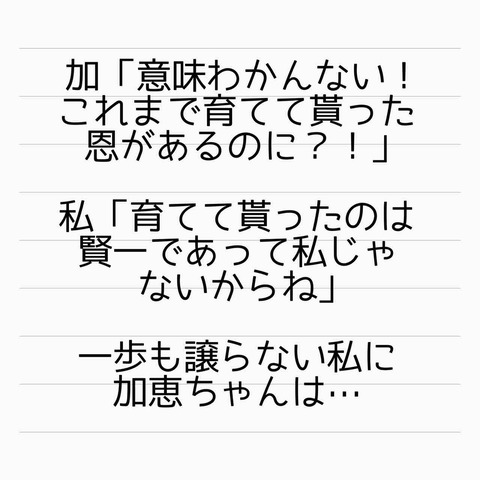 加「意味わかんない！
これまで育てて貰った
恩があるのに？！」
私「育てて貰ったのは
賢一であって私じゃ
ないからね」
一歩も譲らない私に
加恵ちゃんは…